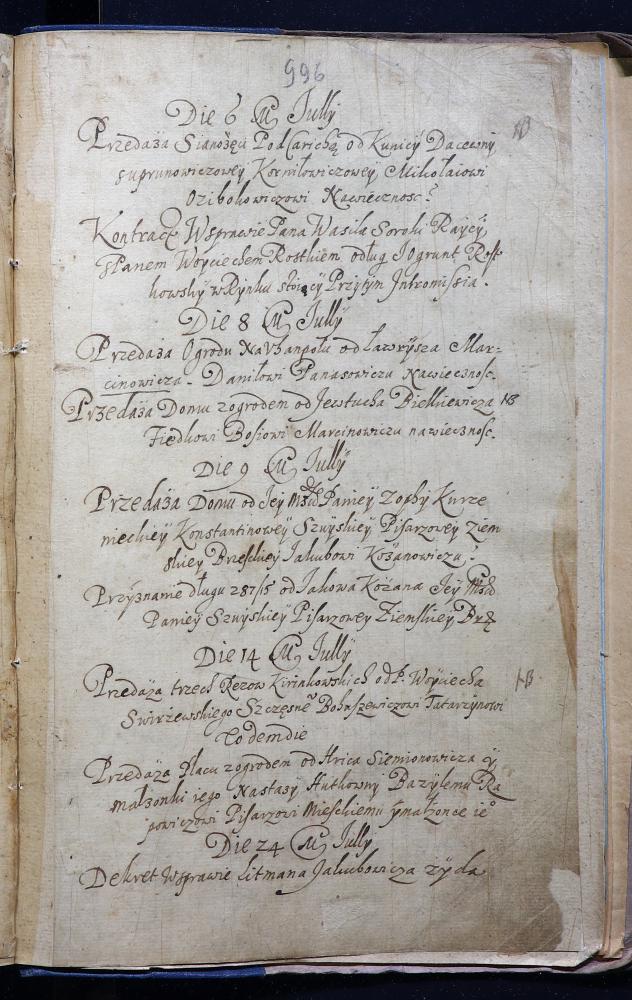 996
Die 6 M Julÿ
Przedaża Sianożęci Pod Carichą od Kunicÿ Dacewnÿ
suprunowiczoweÿ Kormiłowiczoweÿ Mikołaiowi
Ozibohowiczowi Nawiecznosc
Kontract Wsprawie Pana Wasila Sorohi Raÿcÿ
sPanem Woÿciechem Rostkiem odług Jogrunt Rost
kowskÿ wRÿnku stoiącÿ Przÿtÿm Intromissia.
Die 8 M Julÿ
Przedaża Ogrodu Na od Ławrÿsza Mar=
cinowicza Daniłowi Panasowiczu Nawiecznosc
Przedaża Domu zogrodem od Jewtucha Bielkiewicza NB
Fiedkowi Bosiowi Marcinowiczu nawiecznosc
Die 9 M Julÿ
Przedaża Domu od Jeÿ Mści Panieÿ Zophÿ Kurze
nieckieÿ Konstantinoweÿ Szuÿskieÿ Pisarzoweÿ Ziem
skieÿ Brzeskieÿ Jakubowi Kożanowiczu
Przÿznanie długu 287/15 od Jakowa Kożana Jeÿ Mści
Panieÿ Szuÿskieÿ Pisarzoweÿ Ziemskieÿ Brz
Die 14 M Julÿ
Przedaża trzech Rezow Kirinkowskich od P. Woÿciecha NB
Swirzewskiego Szczęsnē Bohuszewiczowi Tatarzÿnowi
Eodem die
Przedaża Placu zogrodem od Hrica Siemionowicza ÿ
małżonki iego Nastasÿ Hutkownÿ Bazÿlemu Ra
powiczowi Pisarzowi Mieskiemu ÿ małżonce ie°
Die 24 M Julÿ
Dekret Wsprawie Litmana Jakubowicza żÿda